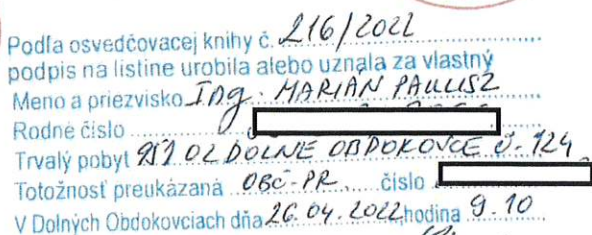 Podľa osvedčovacej knihy č. 216/2022
podpis na listine urobila alebo uznala za vlastný
Meno a priezvisko Ing. MARIÁN PAULISZ
Rodné číslo
Trvalý pobyt 951 02 DOLNÉ OBDOKOVCE č. 124
Totožnosť preukázaná OBČ-PR číslo
V Dolných Obdokovciach dňa 26.04.2022 hodina 9.10